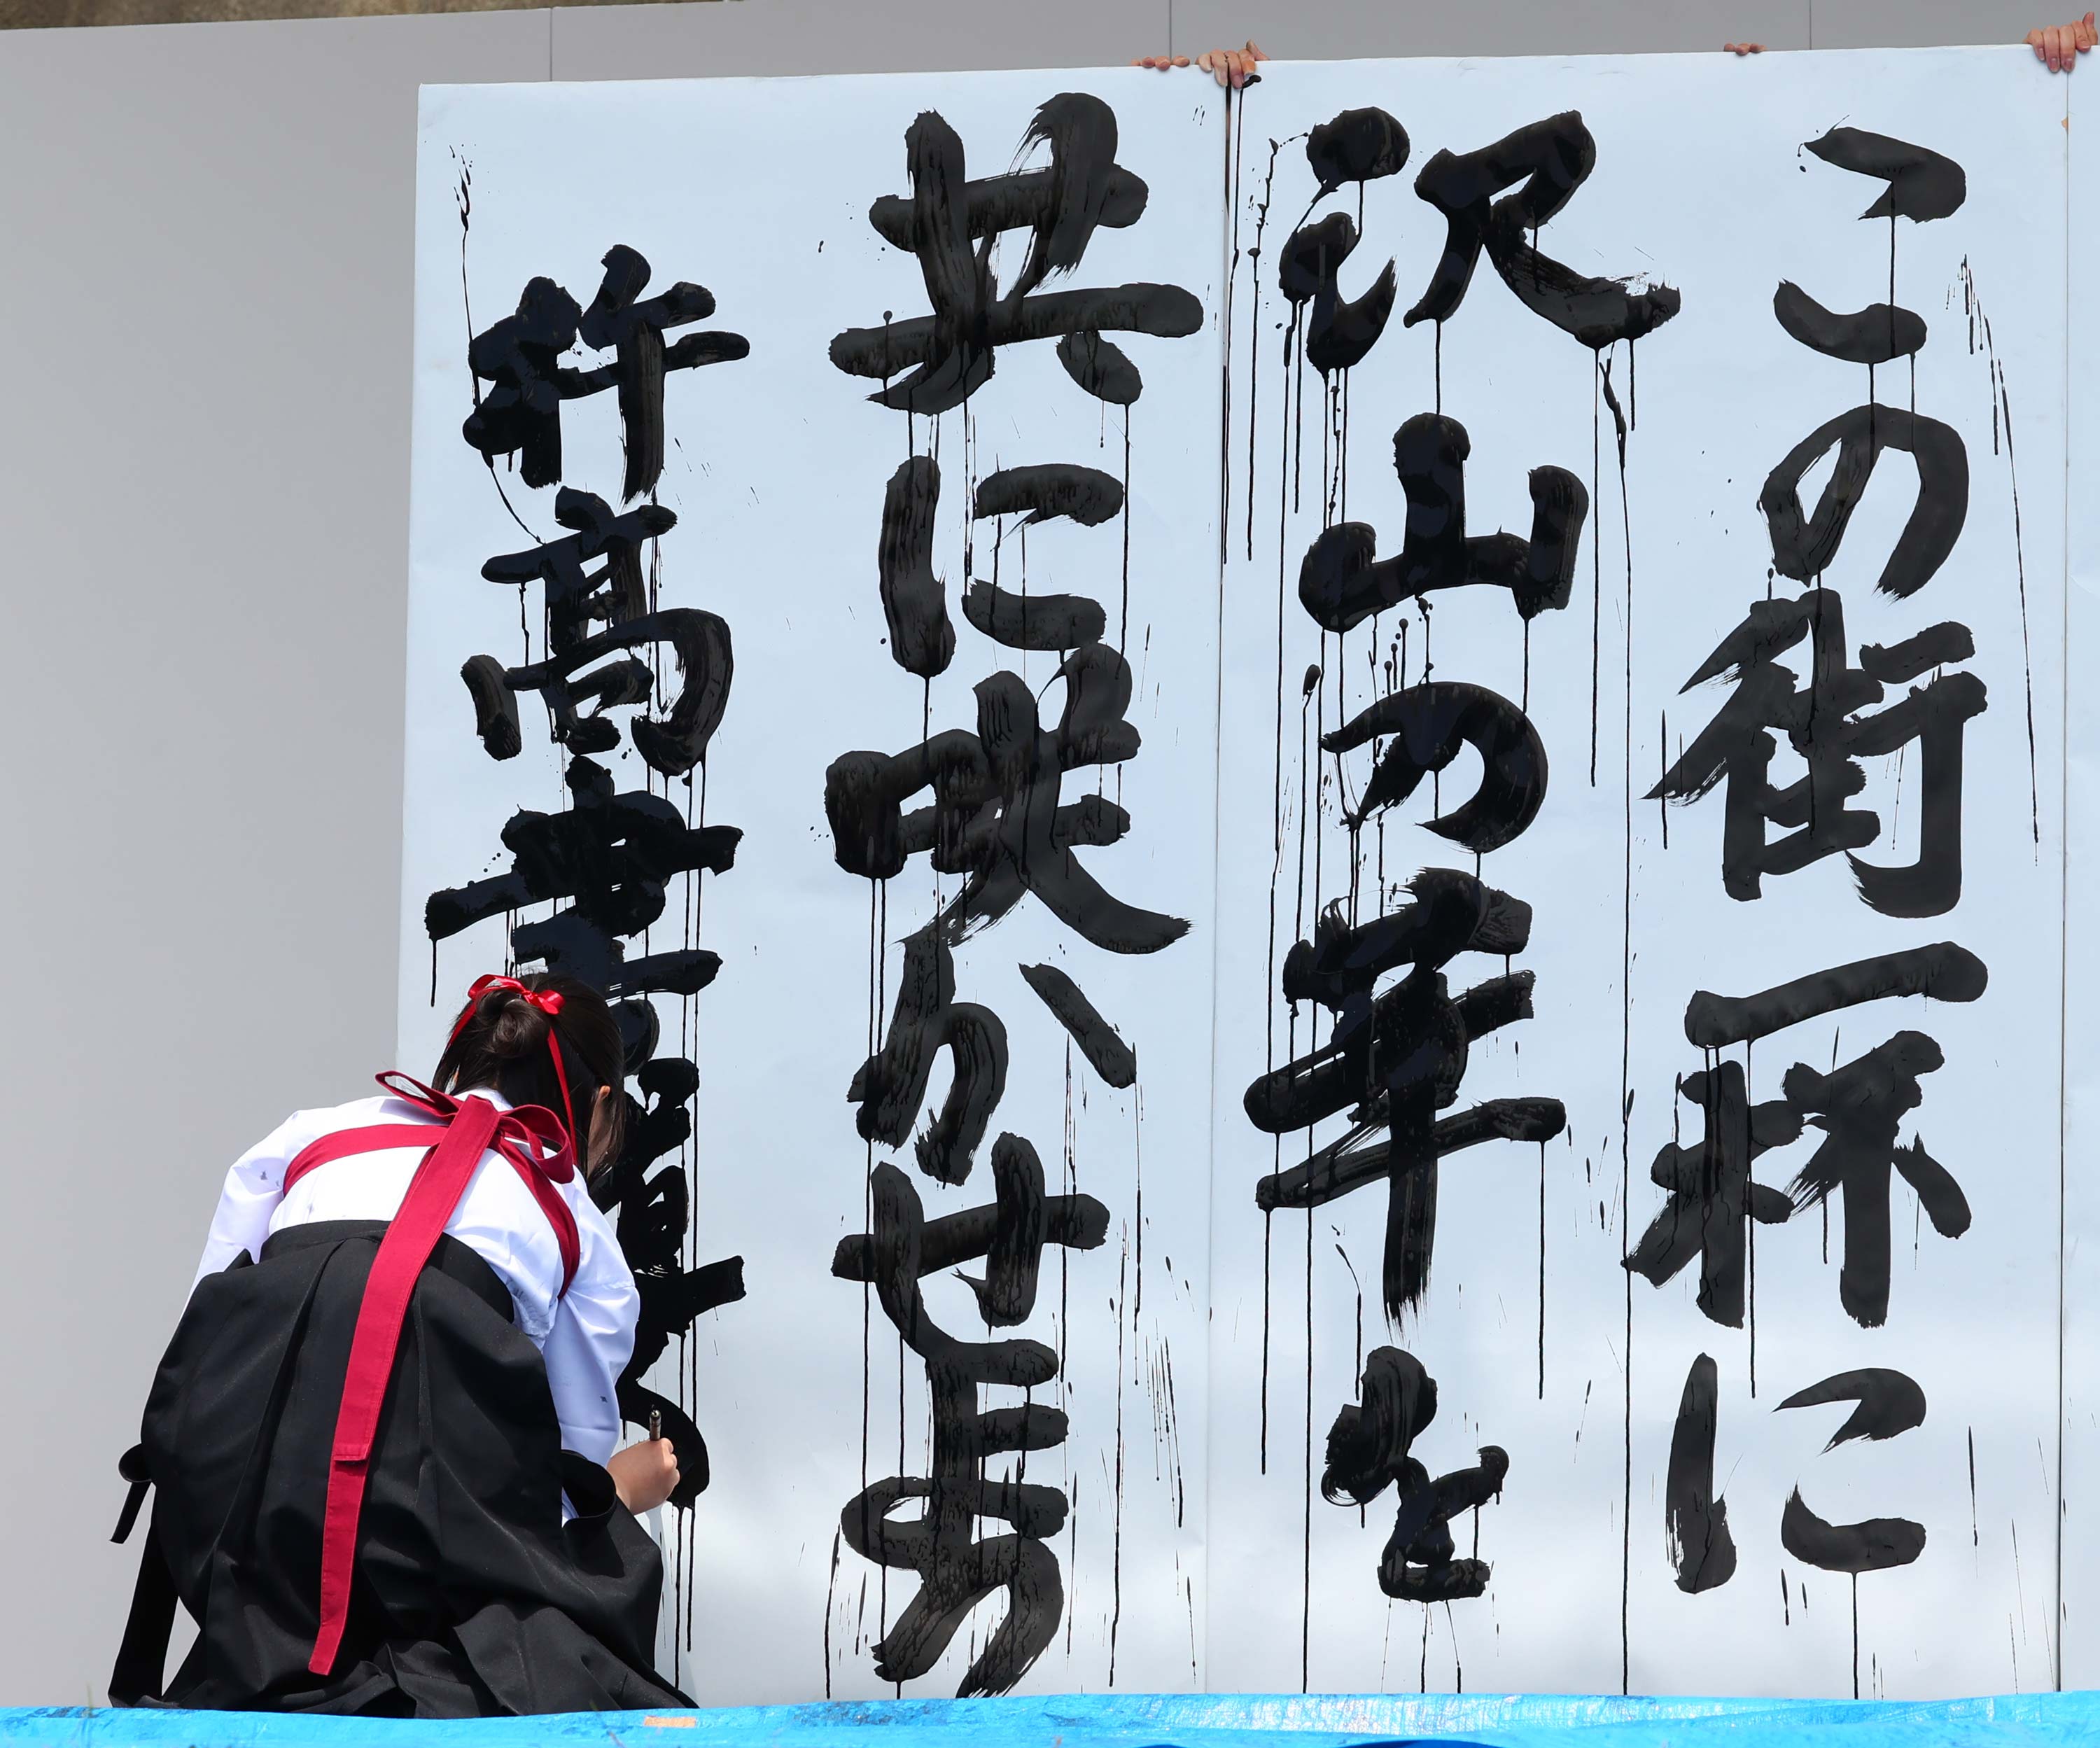 この街一杯に
沢山の華を
共に咲かせよう
杵高書